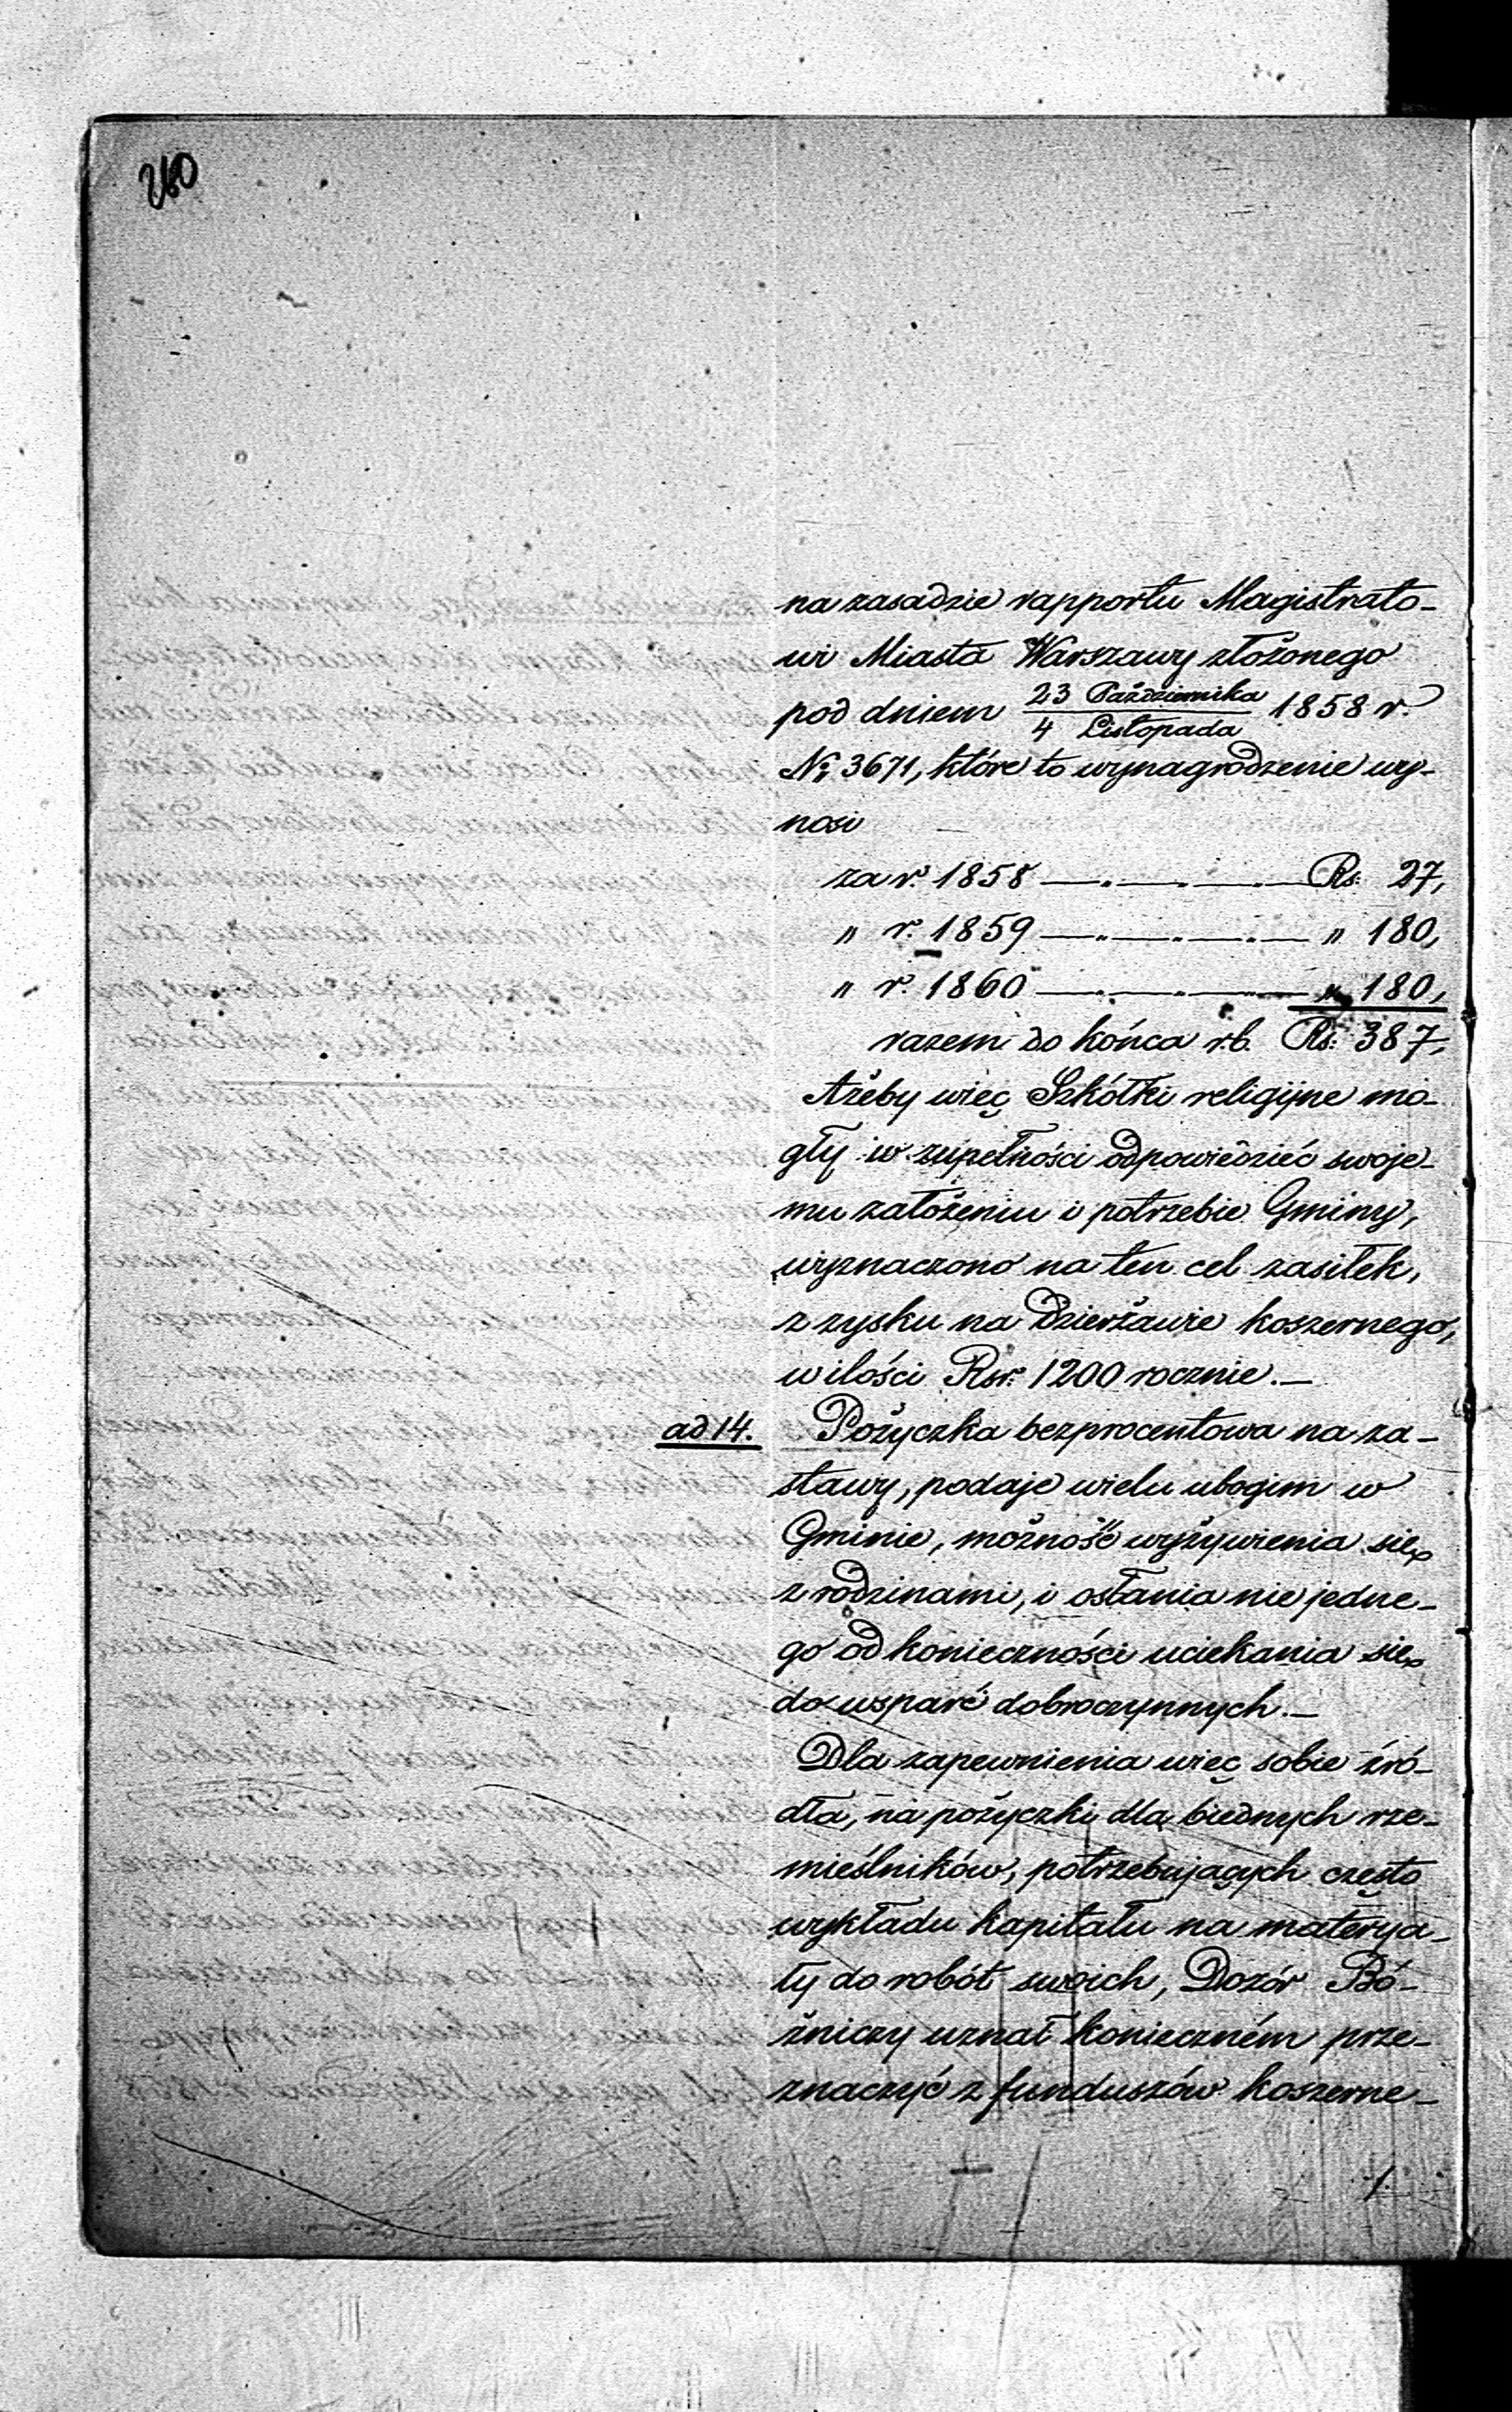 260
na zasadzie rapportu Magistrato-
wi Miasta Warszawy złożonego
pod dniem 23 Października / 4 Listopada 1858 r.
№ 3671, które to wynagrodzenie wy-
nosi
za r. 1858 —„—„—„— Rs: 27,
„ r. 1859 —„—„—„— „ 180,
„ r. 1860 —„—„—„— „ 180,
razem do końca r.b. Rs: 387,
Ażeby więc Szkółki religijne mo-
gły w zupełności odpowiedzieć swoje-
mu założeniu i potrzebie Gminy,
wyznaczono na ten cel zasiłek,
z zysku na Dzierżawie koszernego,
w ilości Rsr. 1200 rocznie.—
ad 14. Pożyczka bezprocentowa na za-
stawy, podaje wielu ubogim w
Gminie, możność wyżywienia się
z rodzinami, i osłania nie jedne-
go od konieczności uciekania się
do wsparć dobroczynnych.—
Dla zapewnienia więc sobie źró-
dła, na pożyczki dla biednych rze-
mieślników, potrzebujących często
wykładu kapitału na materya-
ły do robót swoich, Dozór Bó-
żniczy uznał konieczném prze-
znaczyć z funduszów koszerne-